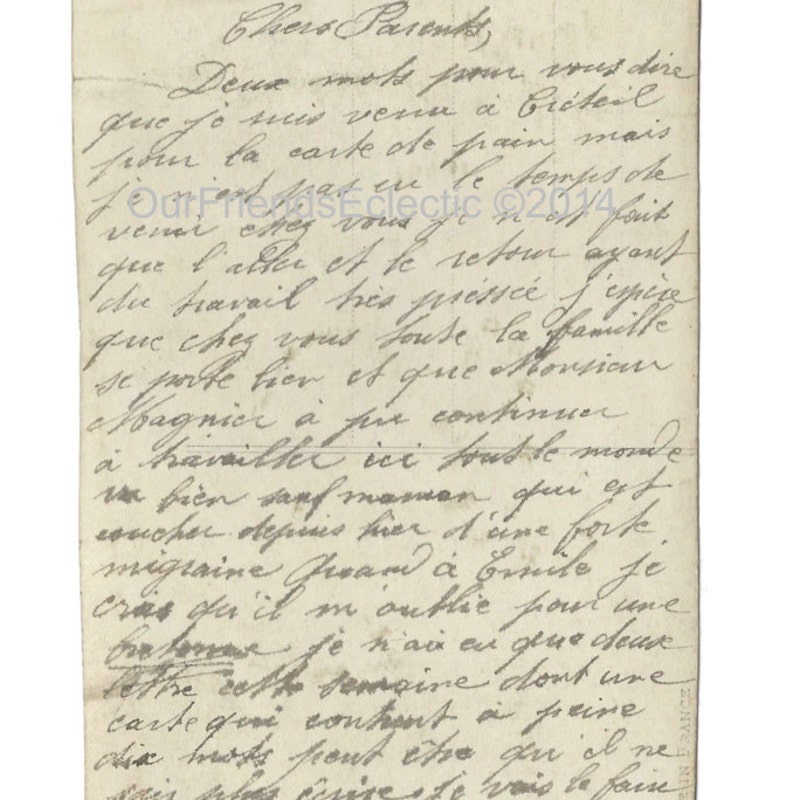 Chers Parents,
Deux mots pour vous dire
que je suis venu à Créteil
pour la carte de pain mais
je n'est pas eu le temps de
OurFriendsEclectic ©2014
venir chez vous je n'est fait
que l'aller et le retour ayant
du travail très préssée j'espère
que chez vous toute la famille
se porte bien et que Monsieur
Magnier à pu continuer
à travailler ici tout le monde
va bien sauf maman qui est
coucher depuis hier d'une forte
migraine Quand à Emile je
crois qu'il m'oublie pour une
bretonne je n'ai eu que deux
lettre cette semaine dont une
carte qui contient à peine
dix mots peut être qu'il ne
sais plus écrire je vais le faire
IN FRANCE